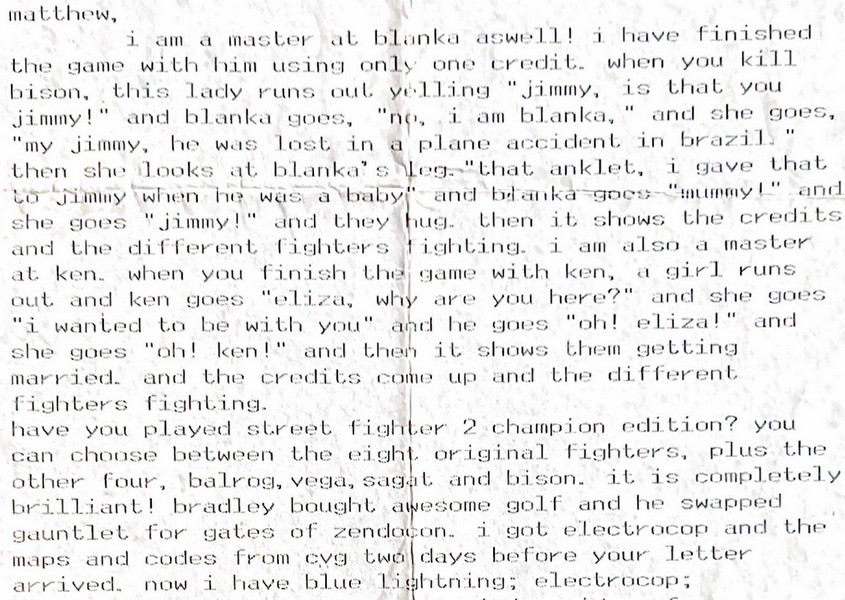 matthew,
i am a master at blanka aswell! i have finished
the game with him using only one credit. when you kill
bison, this lady runs out yelling "jimmy, is that you
jimmy!" and blanka goes, "no, i am blanka," and she goes,
"my jimmy, he was lost in a plane accident in brazil."
then she looks at blanka's leg."that anklet, i gave that
to jimmy when he was a baby" and blanka goes "mummy!" and
she goes "jimmy!" and they hug. then it shows the credits
and the different fighters fighting. i am also a master
at ken. when you finish the game with ken, a girl runs
out and ken goes "eliza, why are you here?" and she goes
"i wanted to be with you" and he goes "oh! eliza!" and
she goes "oh! ken!" and then it shows them getting
married. and the credits come up and the different
fighters fighting.
have you played street fighter 2 champion edition? you
can choose between the eight original fighters, plus the
other four, balrog,vega,sagat and bison. it is completely
brilliant! bradley bought awesome golf and he swapped
gauntlet for gates of zendocon. i got electrocop and the
maps and codes from cvg two days before your letter
arrived. now i have blue lightning; electrocop;